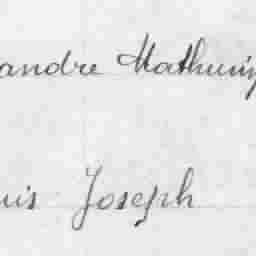 andre Mathurin
uis Joseph